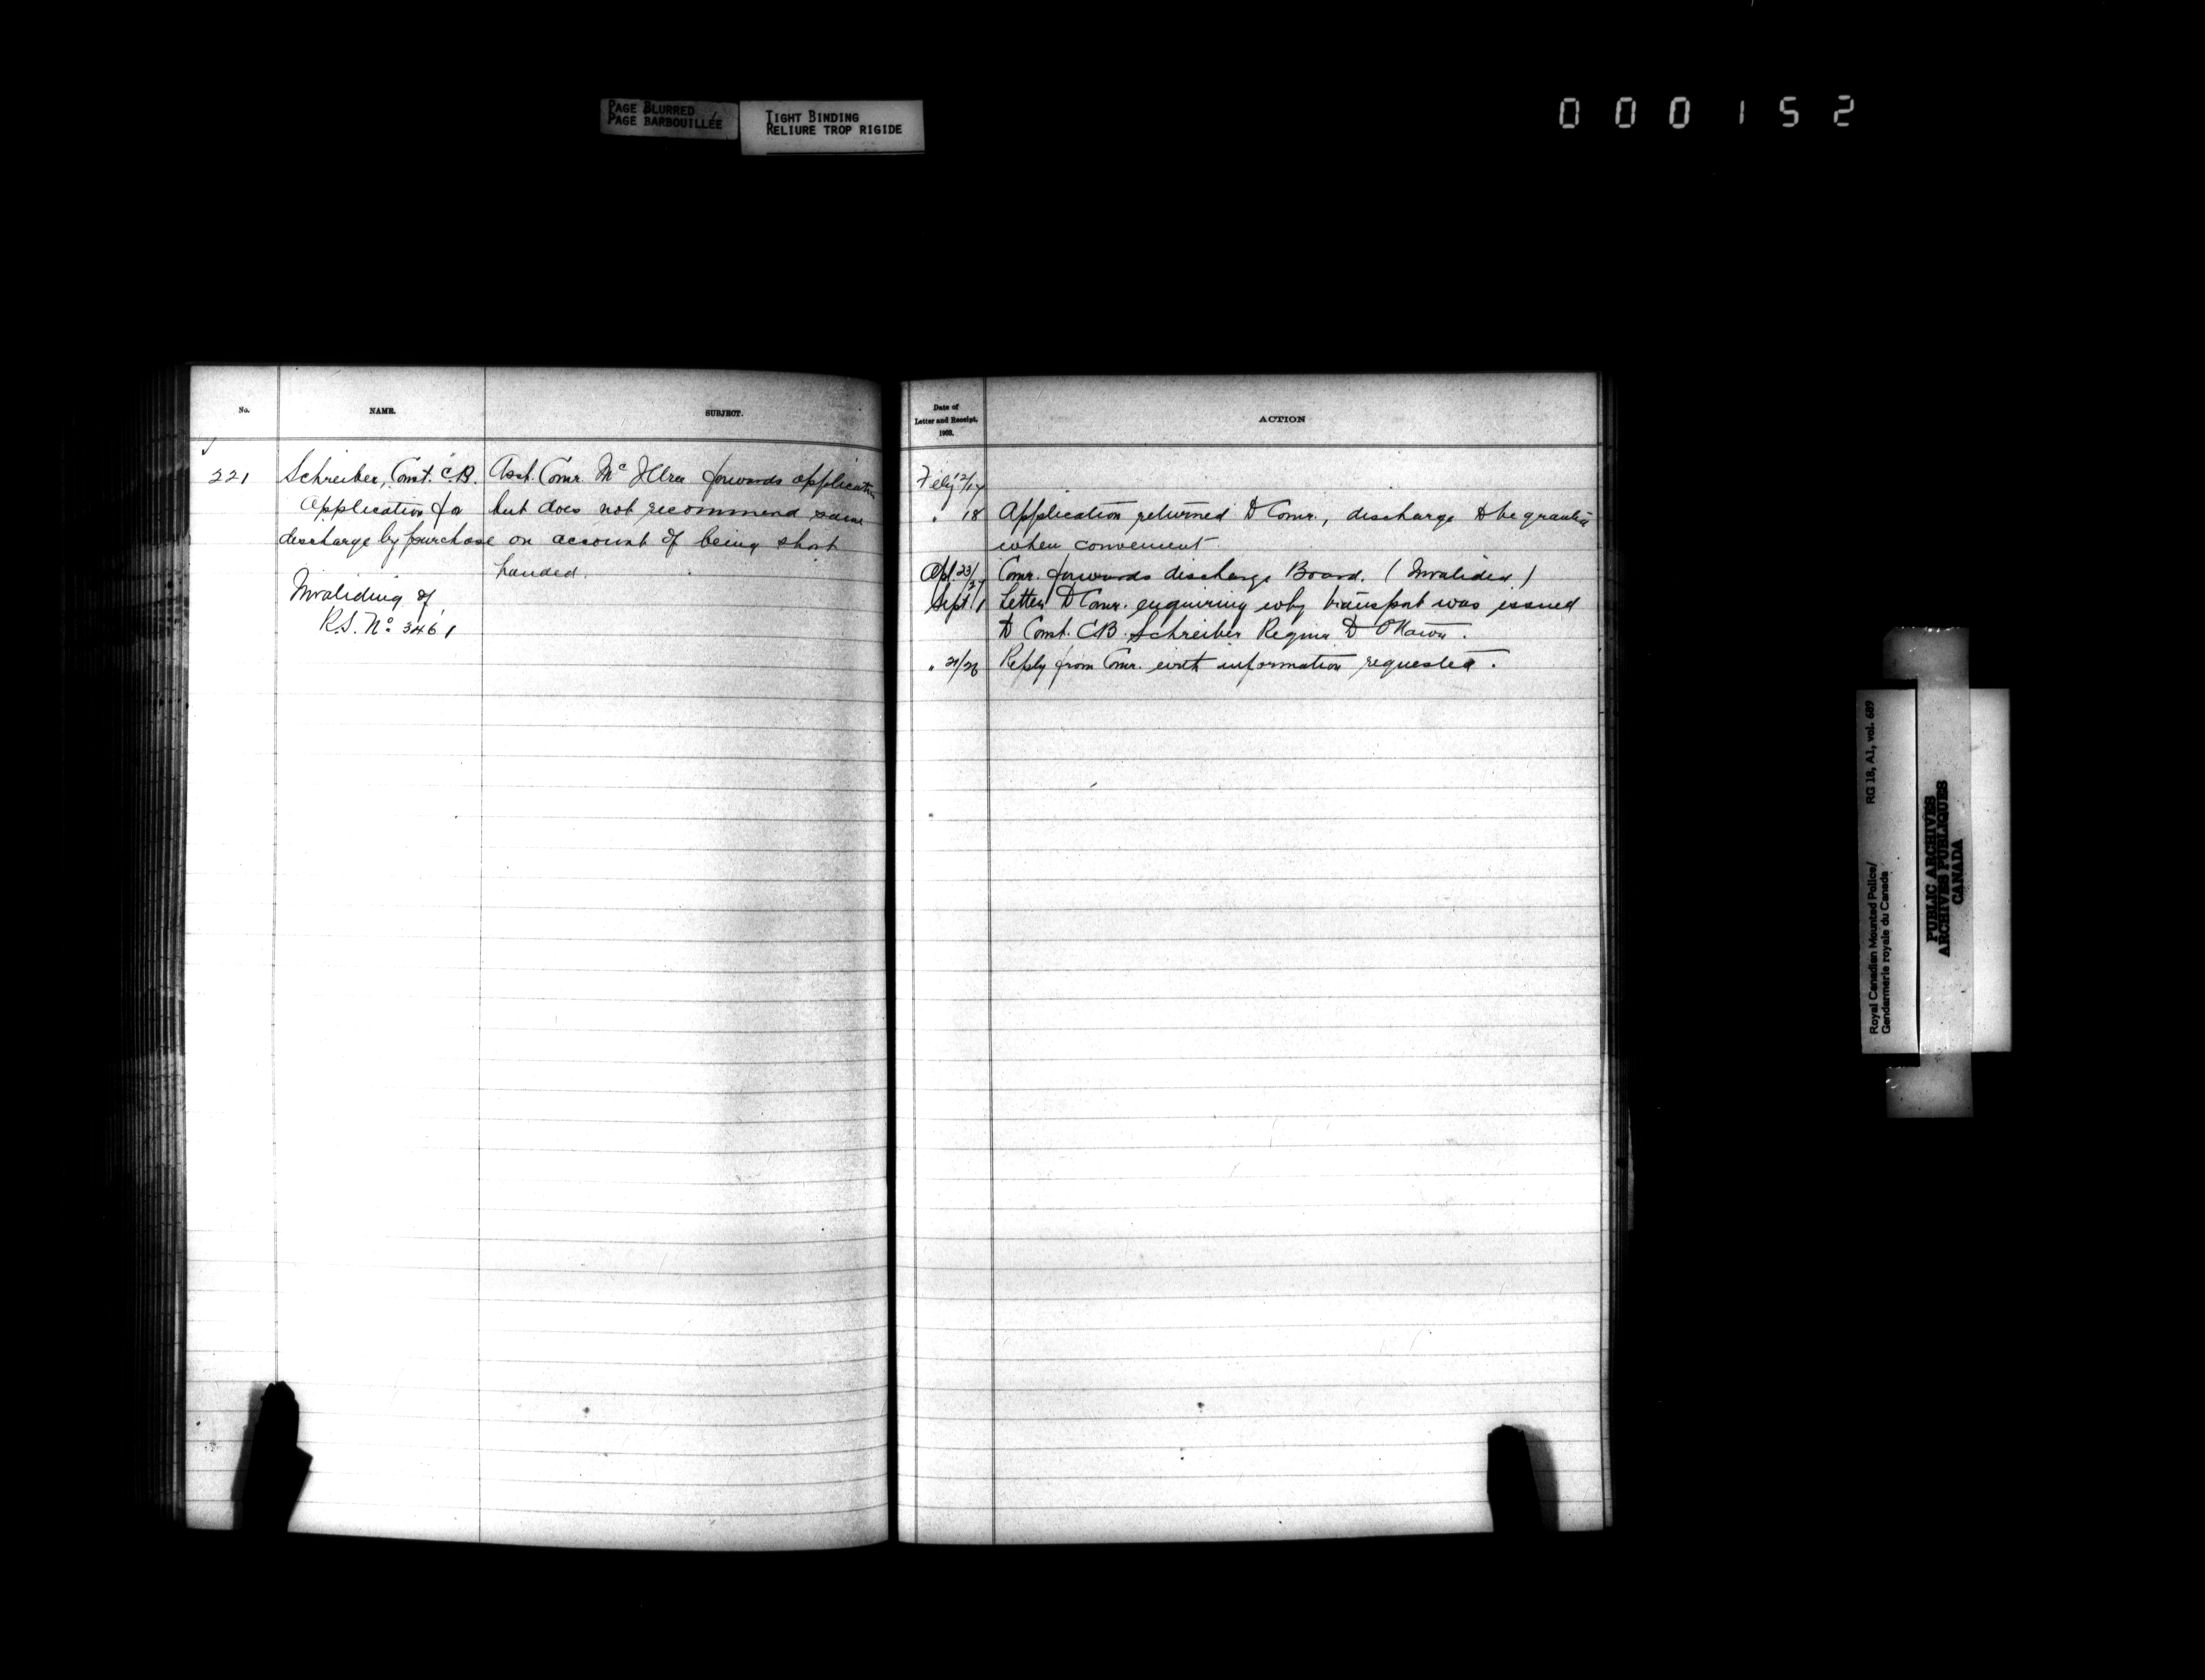 PAGE BLURRED
PAGE BARBOUILLÉE
TIGHT BINDING
RELIURE TROP RIGIDE
000152
No.
NAME.
SUBJECT.
221
Schreiber, Const. C.B.
Application for
discharge by purchase
Invaliding of
R.S. No. 3461
Asst. Comr. McIllree forwards application
but does not recommend same
on account of being short
handed.
Date of
Letter and Receipt,
1902.
ACTION
Feby 12/17
" 18 Application returned to Comr., discharge to be granted
when convenient
Apl. 23/29 Comr. forwards discharge Board. (Invalided)
Sept 1 Letter to Comr. enquiring why transport was issued
to Const. C.B. Schreiber Regina to Ottawa.
" 21/26 Reply from Comr. with information requested.
Royal Canadian Mounted Police/
Gendarmerie royale du Canada
RG 18, A1, vol. 689
PUBLIC ARCHIVES
ARCHIVES PUBLIQUES
CANADA